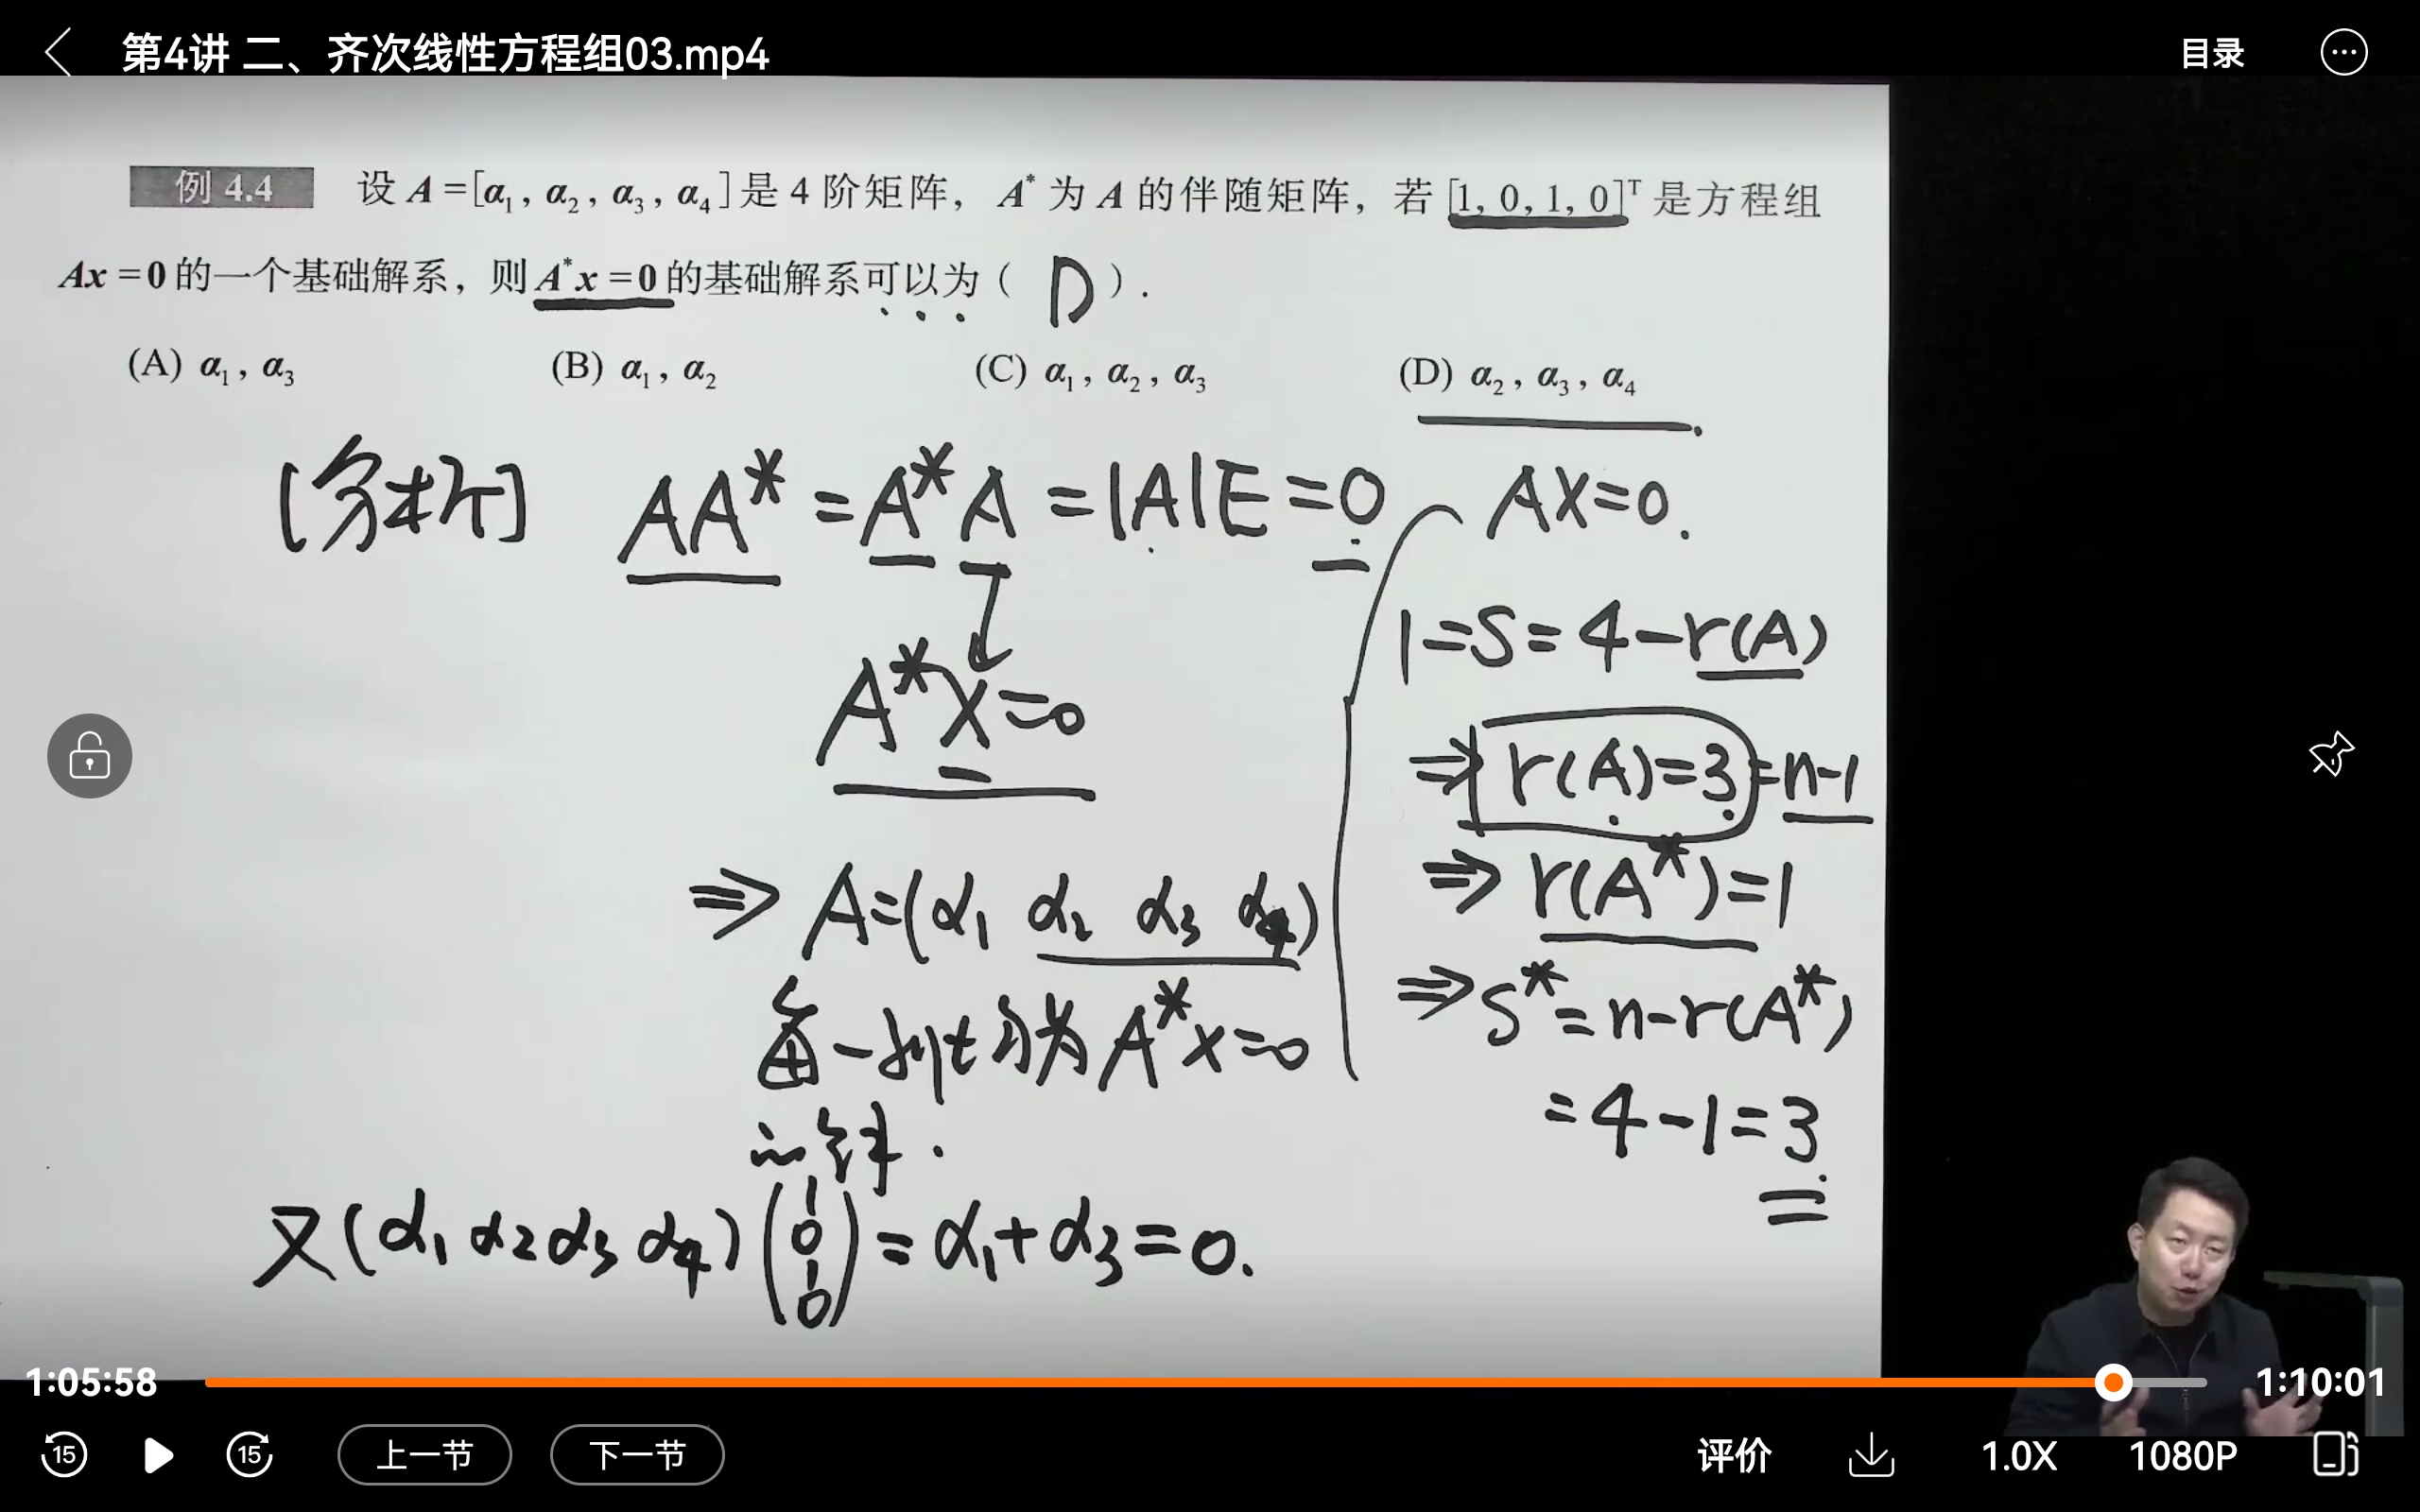 第4讲 二、齐次线性方程组03.mp4
目录
例 4.4 设 A =[α₁, α₂, α₃, α₄]是 4 阶矩阵, A* 为 A 的伴随矩阵, 若 [1, 0, 1, 0]ᵀ 是方程组
Ax = 0 的一个基础解系, 则 A*x = 0 的基础解系可以为 ( D ).
(A) α₁, α₃ (B) α₁, α₂ (C) α₁, α₂, α₃ (D) α₂, α₃, α₄
[分析] AA* = A*A = |A|E = 0
A*x=0
⇒ A=(α₁ α₂ α₃ α₄)
每一列均为 A*x=0
的解.
又(α₁ α₂ α₃ α₄)(1 0 1 0) = α₁+α₃=0.
AX=0.
1=S=4-r(A)
⇒ r(A)=3=n-1
⇒ r(A*)=1
⇒ S*=n-r(A*)
=4-1=3
1:05:58
1:10:01
15
15
上一节
下一节
评价
1.0X
1080P